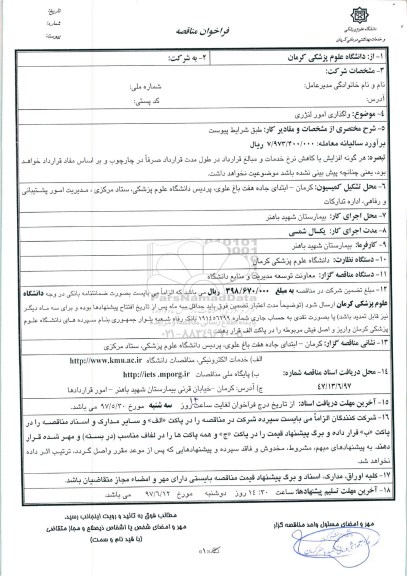 تاریخ:
شماره:
پیوست:
دانشگاه علوم پزشکی
و خدمات بهداشتی درمانی کرمان
فراخوان مناقصه
۱- از: دانشگاه علوم پزشکی کرمان
۲- به شرکت:
۳- مشخصات شرکت:
نام و نام خانوادگی مدیرعامل: شماره ملی:
آدرس: کد پستی:
۴- موضوع: واگذاری امور لنژری
۵- شرح مختصری از مشخصات و مقادیر کار: طبق شرایط پیوست
برآورد سالیانه معامله: ۷/۹۷۳/۴۰۰/۰۰۰ ریال
تبصره: هر گونه افزایش یا کاهش نرخ خدمات و مبالغ قرارداد در طول مدت قرارداد صرفاً در چارچوب و بر اساس مفاد قرارداد خواهد
بود. یعنی چنانچه پیش بینی نشده باشد موضوعیت نخواهد داشت.
۶- محل تشکیل کمیسیون: کرمان – ابتدای جاده هفت باغ علوی، پردیس دانشگاه علوم پزشکی، ستاد مرکزی ، مدیریت امور پشتیبانی
و رفاهی، اداره تدارکات
۷- محل اجرای کار: بیمارستان شهید باهنر
۸- مدت اجرای کار: یکسال شمسی
۹- کارفرما: بیمارستان شهید باهنر
۱۰- دستگاه نظارت: دانشگاه علوم پزشکی کرمان
۱۱- دستگاه مناقصه گزار: معاونت توسعه مدیریت و منابع دانشگاه
۱۲- مبلغ تضمین شرکت در مناقصه به مبلغ ۳۹۸/۶۷۰/۰۰۰ ریال می باشد که الزاماً می بایست بصورت ضمانتنامه بانکی در وجه دانشگاه
علوم پزشکی کرمان ارسال شود (توضیحاً مدت اعتبار تضمین فوق باید حداقل سه ماه پس از تاریخ افتتاح پیشنهادها بوده و برای سه ماه دیگر
نیز قابل تمدید باشد) یا بصورت نقدی به حساب جاری شماره بانک رفاه شعبه بلوار جمهوری بنام سپرده های دانشگاه علوم
پزشکی کرمان واریز و اصل فیش مربوطه را در پاکت الف قرار دهند.
۱۳- نشانی مناقصه گزار: کرمان – ابتدای جاده هفت باغ علوی، پردیس دانشگاه علوم پزشکی، ستاد مرکزی
۱۴- محل دریافت اسناد مناقصه شماره:
۴۷/۱۳/۶/۹۷
الف) خدمات الکترونیکی، مناقصات دانشگاه http://www.kmu.ac.ir
ب) پایگاه ملی مناقصات http://iets.mporg.ir
ج) آدرس: کرمان -خیابان قرنی بیمارستان شهید باهنر - امور قراردادها
۱۵- آخرین مهلت دریافت اسناد: از تاریخ درج فراخوان لغایت ساعت ۱۴ روز سه شنبه مورخ ۹۷/۵/۳۰ می باشد.
۱۶- شرکت کنندگان الزاماً می بایست سپرده شرکت در مناقصه را در پاکت «الف» و سایر مدارک و اسناد مناقصه را در
پاکت «ب» قرار داده و برگ پیشنهاد قیمت را در پاکت «ج» و همه پاکت ها را در لفاف مناسب (در بسته) و مهر شده قرار
دهند. به پیشنهادهای مبهم، مشروط، مخدوش و فاقد سپرده و پیشنهادهایی که پس از موعد مقرر واصل گردد، ترتیب اثر داده
نخواهد شد.
۱۷- کلیه اوراق، مدارک، اسناد و برگ پیشنهاد قیمت مناقصه بایستی دارای مهر و امضاء مجاز متقاضیان باشد.
۱۸- آخرین مهلت تسلیم پیشنهادها: ساعت ۱۴:۳۰ روز دوشنبه مورخ ۹۷/۶/۱۲ می باشد.
مهر و امضای مسئول واحد مناقصه گزار
مطالب فوق به تائید و رویت اینجانب رسید.
مهر و امضای شخص یا اشخاص ذیصلاح و مجاز متقاضی
(با قید نام و سمت)